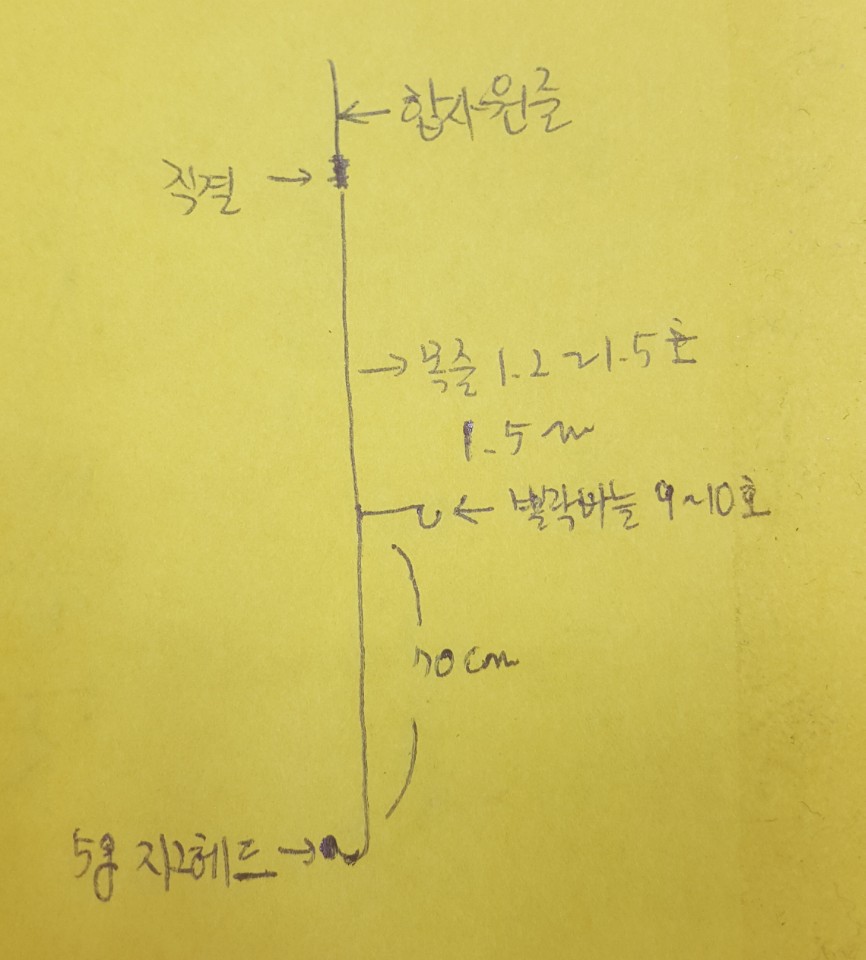 합사원줄
직결
목줄 1.2~1.5호
1.5m
볼락바늘 9~10호
70cm
5g 지그헤드